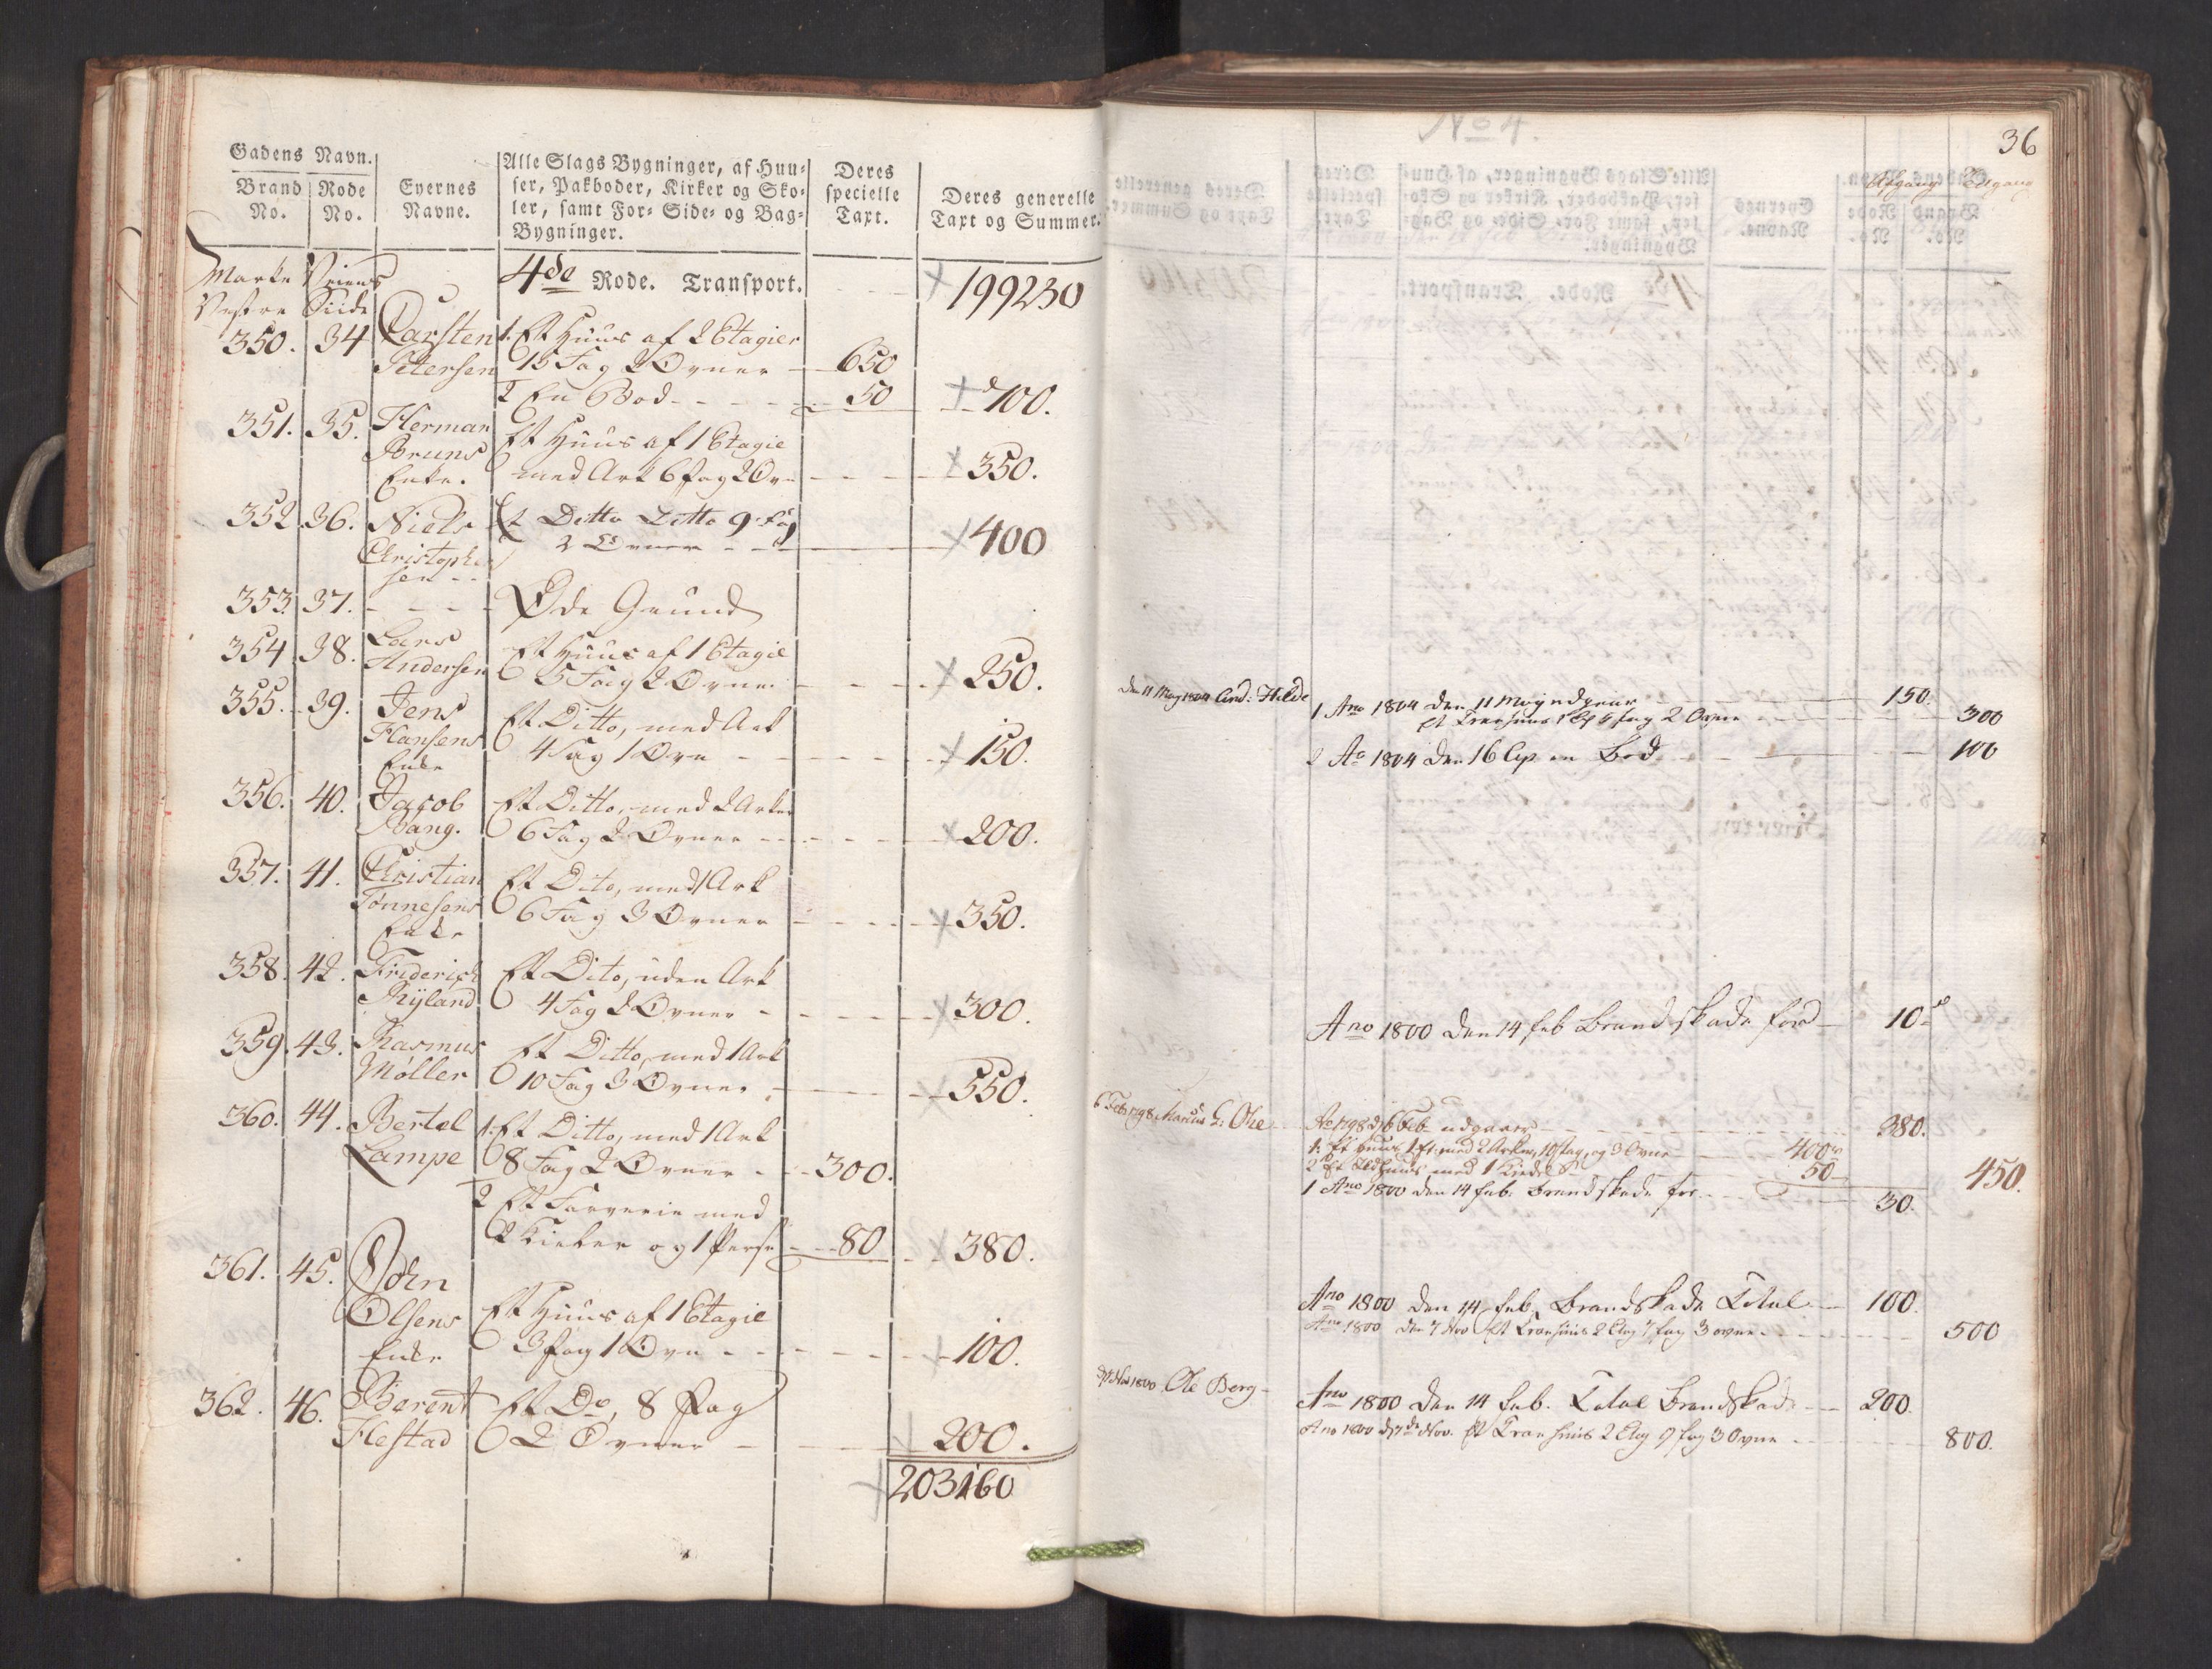 Gadens Navn.
Brand No. Rode No. Eyernes Navne. Alle Slags Bygninger, af Huu=
ser, Pakboder, Kirker og Sko=
ler, samt For= Side= og Bag=
Bygninger. Deres specielle Taxt. Deres generelle Taxt og Summer.
Marke Veiens 4de Rode. Transport. 199230
Vestre Siide
350. 34 Carsten 1. Et Huus af 2 Etagier
Petersen 15 Fag 2 Ovner 650
2 En Bod 50 700.
351. 35. Herman Et Huus af 1 Etagie
Bruns med Ark 6 fag 2 Ovn 350.
Enke.
352 36. Niels Et Ditto Ditto 9 Fag
Christopher 2 Ovner 400
sen
353. 37. Øde Grund
354 38. Lars Et Huus af 1 Etagie
Andersen 5 Fag 2 Ovner 250.
355. 39. Jens Et Ditto, med Ark
Hansens 4 Fag 1 Ovn 150.
Enke
356. 40. Jacob Et Ditto, med 2 Arker
Bang. 6 Fag 2 Ovner 200.
357. 41. Christian Et Dito, med 1 Ark
Tønnesens 6 Fag 3 Ovner 350.
Enke
358. 42. Friderich Et Dito, uden Ark
Ryland 4 Fag 2 Ovner 300.
359. 43. Rasmus Et Ditto, med 1 Ark
Møller 10 Fag 3 Ovner 550.
360. 44. Bertel 1. Et Ditto, med 1 Ark
Lampe 8 Fag 2 Ovner 300.
2 Et Farverie med
2 Kieler og 1 Perse 80 380.
361. 45. Eden
Olsens Et Huus af 1 Etagie
Enke 3 fag 1 Ovn 100.
362. 46. Berent Et Do, 8 Fag
Hestad 2 Ovner 200.
203160
36
Afgang Tilgang
Den 11 May 1804 And: Hilde 1 Ano 1804 den 11 May udgaaer 150.
Et Træehuus 1 Et 4 fag 2 Ovne 300
2 Ao 1804 den 16 en Bod 100
Ano 1800 den 14 feb Brandskade for 10
6 Feb 1798 Marcus L: Ohe Ao 1798 d 6 Feb udgaaer 380.
1. Et huus 1 Et. med 2 Arker, 10 fag, og 3 Ovne 400
2 Et Ildhuus med 1 Kiedel 50 450.
1 Ano 1800 den 14 feb. brandskade for 30.
Ano 1800 den 14 feb. Brandskade Total 100.
Ano 1800 den 7 Nov Et Træehuus 2 Etag 7 fag 3 ovne 500
d 7 Nov 1800 Ole Berg Ano 1800 den 14 feb. Total Brandskade 200.
Ano 1800 d 7de Nov. Et Træehuus 2 Etag 9 fag 3 Ovne 800.